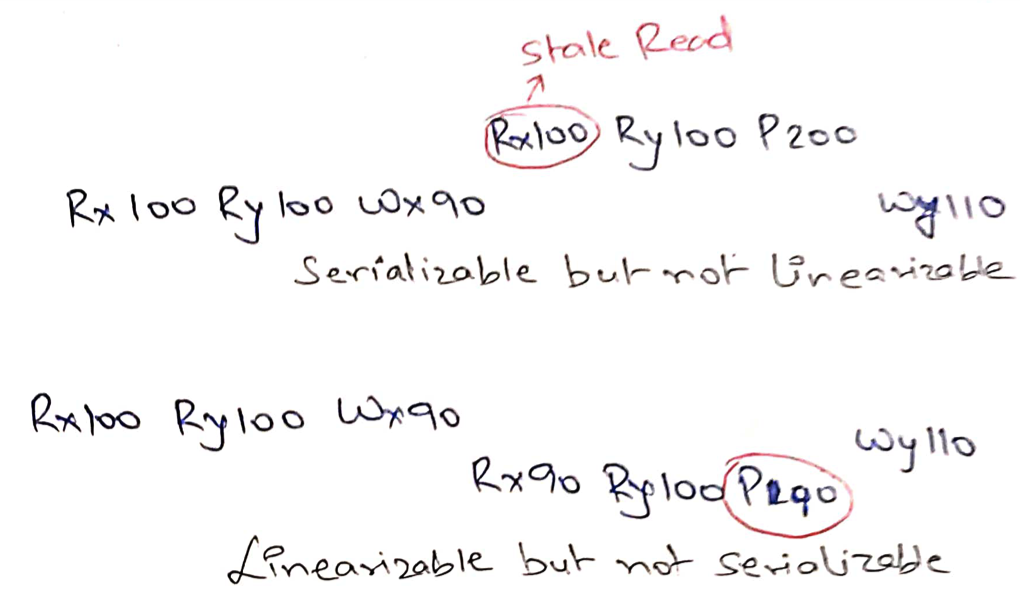 Stale Read
Rx100 Ry100 P200
Rx100 Ry100 Wx90 Wy110
Serializable but not Linearizable
Rx100 Ry100 Wx90
Wy110
Rx90 Ry100 P190
Linearizable but not serializable